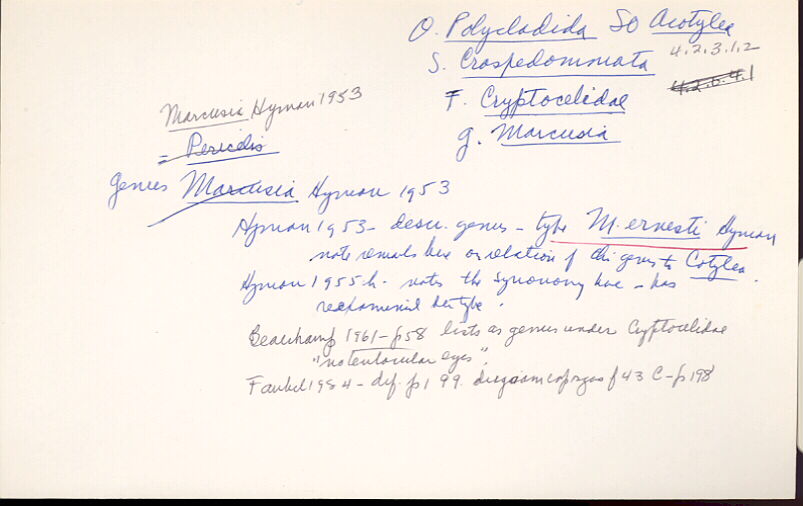 O. Polycladida SO Acotylea
S. Craspedommata 4.2.3.1.2
F. Cryptocelidae 4.2.6.4.1
g. Marcusia
Marcusia Hyman 1953
= Pericelis
Genus Marcusia Hyman 1953
Hyman 1953 - descr. genus - type M. ernesti Hyman
note remarks here on relation of this genus to Cotylea.
Hyman 1955h - notes the synonomy here - has
reexamined her type.
Beauchamp 1961 - p58 lists as genus under Cryptocelidae
"no tentacular eyes".
Faubel 1984 - def. p199. diagram cop. organs f 43 C - p198